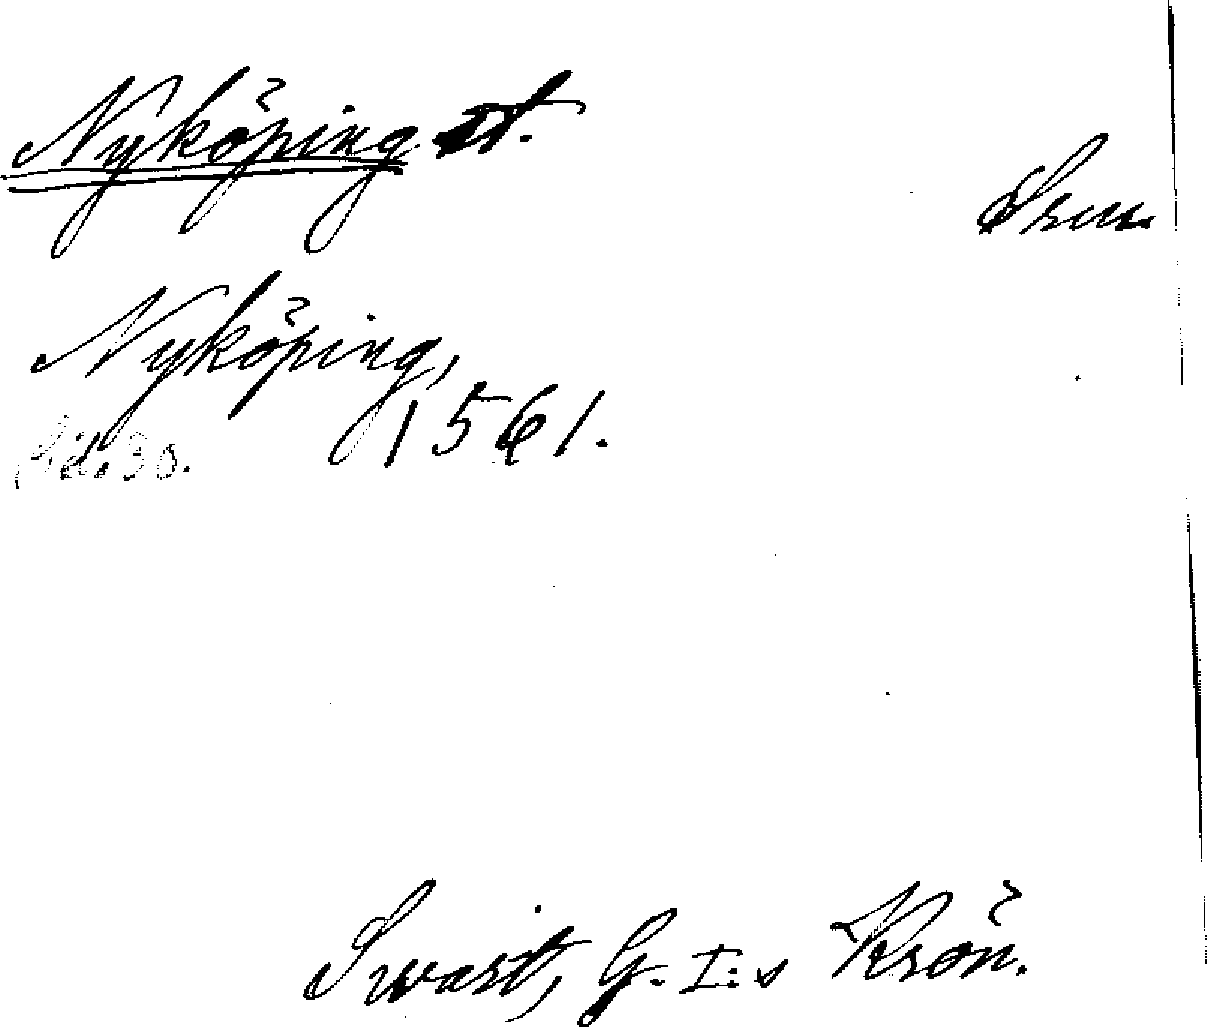 Nyköping st.
Srm.
Nyköping,
1561.
sid. 30.
Swart, G. I:s Krön.